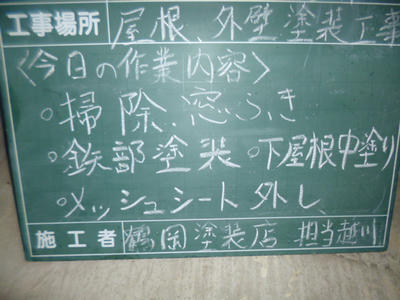 工事場所 屋根、外壁塗装工事
〈今日の作業内容〉
○掃除、窓ふき
○鉄部塗装 ○下屋根中塗り
○メッシュシート外し、
施工者 鶴岡塗装店 担当越川